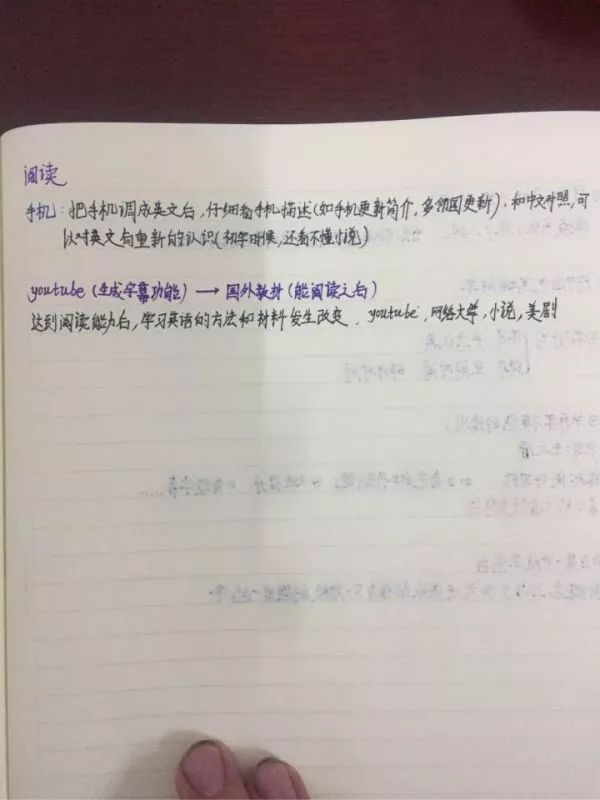 阅读
手机：把手机调成英文后，仔细看手机描述(如手机更新简介，多邻国更新)，和中文对照，可
以对英文有重新的认识(初学时候，还看不懂小说)
youtube (生成字幕功能) → 国外教材(能阅读之后)
达到阅读能力后，学习英语的方法和材料发生改变．youtube，网络大学，小说，美剧